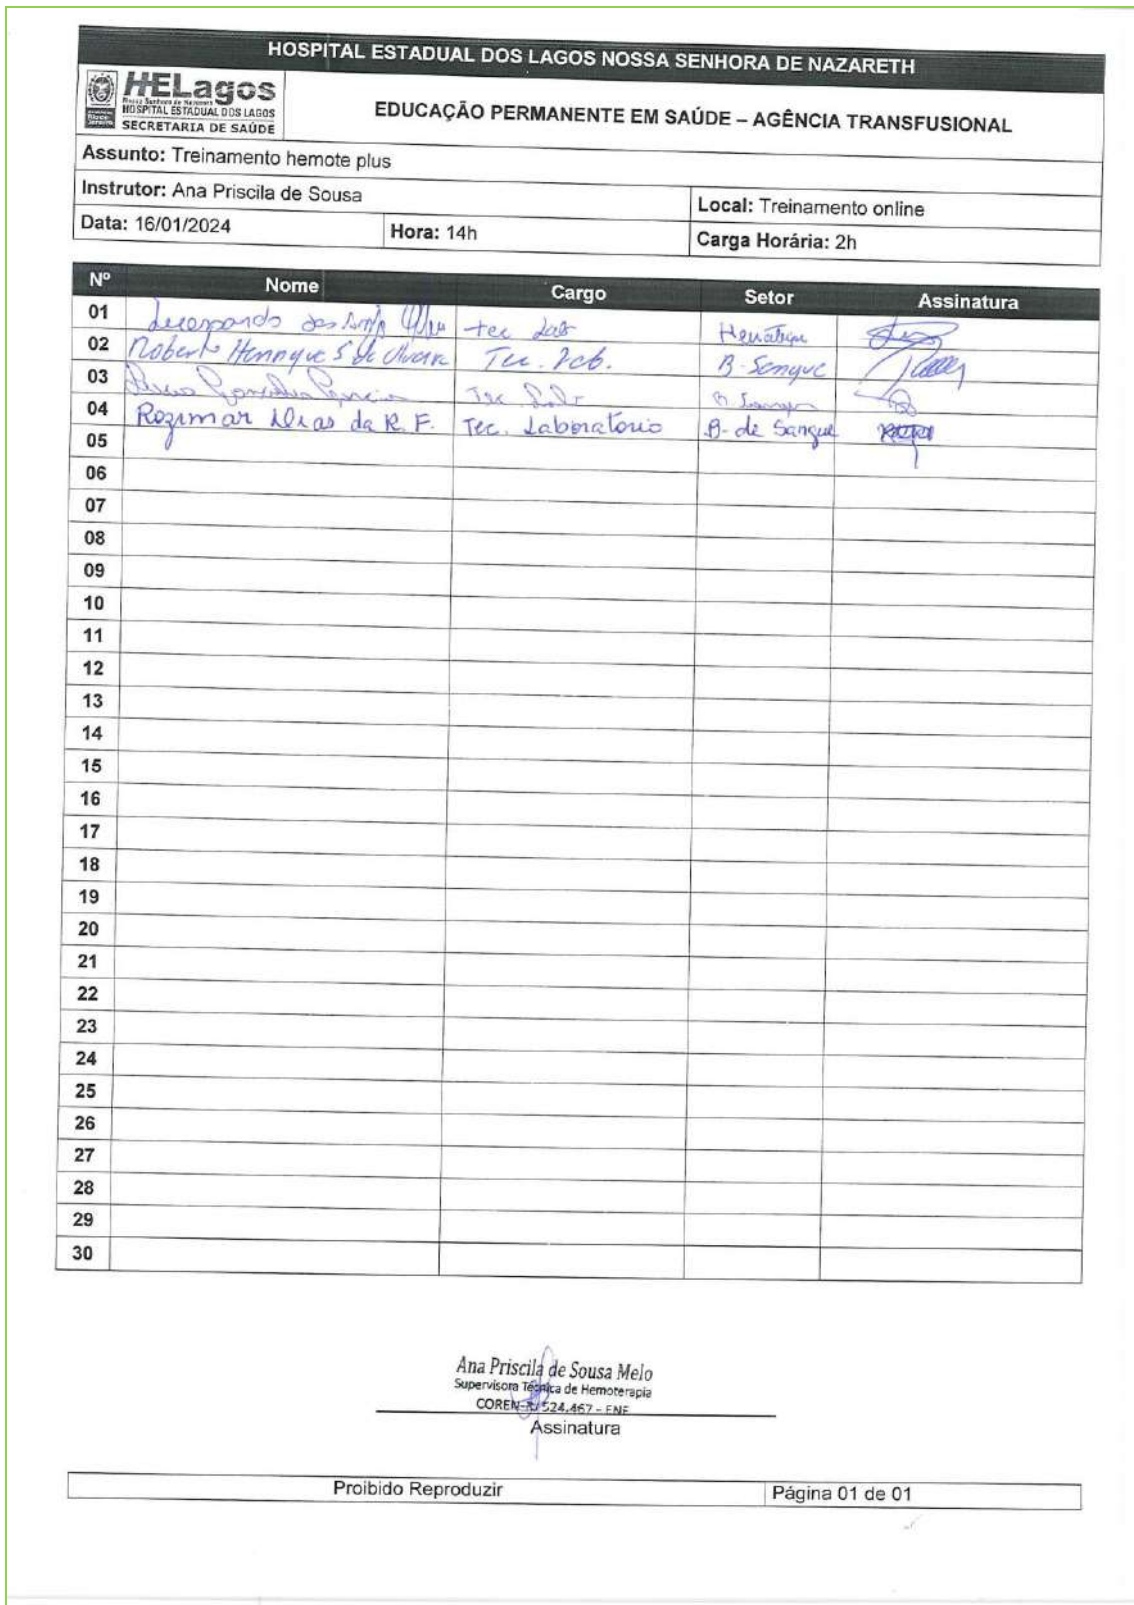 HOSPITAL ESTADUAL DOS LAGOS NOSSA SENHORA DE NAZARETH
HELagos
Nossa Senhora de Nazareth
HOSPITAL ESTADUAL DOS LAGOS
SECRETARIA DE SAÚDE
EDUCAÇÃO PERMANENTE EM SAÚDE – AGÊNCIA TRANSFUSIONAL
Assunto: Treinamento hemote plus
Instrutor: Ana Priscila de Sousa
Local: Treinamento online
Data: 16/01/2024 Hora: 14h Carga Horária: 2h
Nº Nome Cargo Setor Assinatura
01 tec Lab
02 Roberto Henrique S de Tec. Lab. B. Sangue
03 Tec Lab B Sangue
04 Rozimar Dias da R. F. Tec. Laboratorio B. de Sangue
05
06
07
08
09
10
11
12
13
14
15
16
17
18
19
20
21
22
23
24
25
26
27
28
29
30
Ana Priscila de Sousa Melo
Supervisora Técnica de Hemoterapia
COREN-RJ 524.467 - ENF
Assinatura
Proibido Reproduzir Página 01 de 01